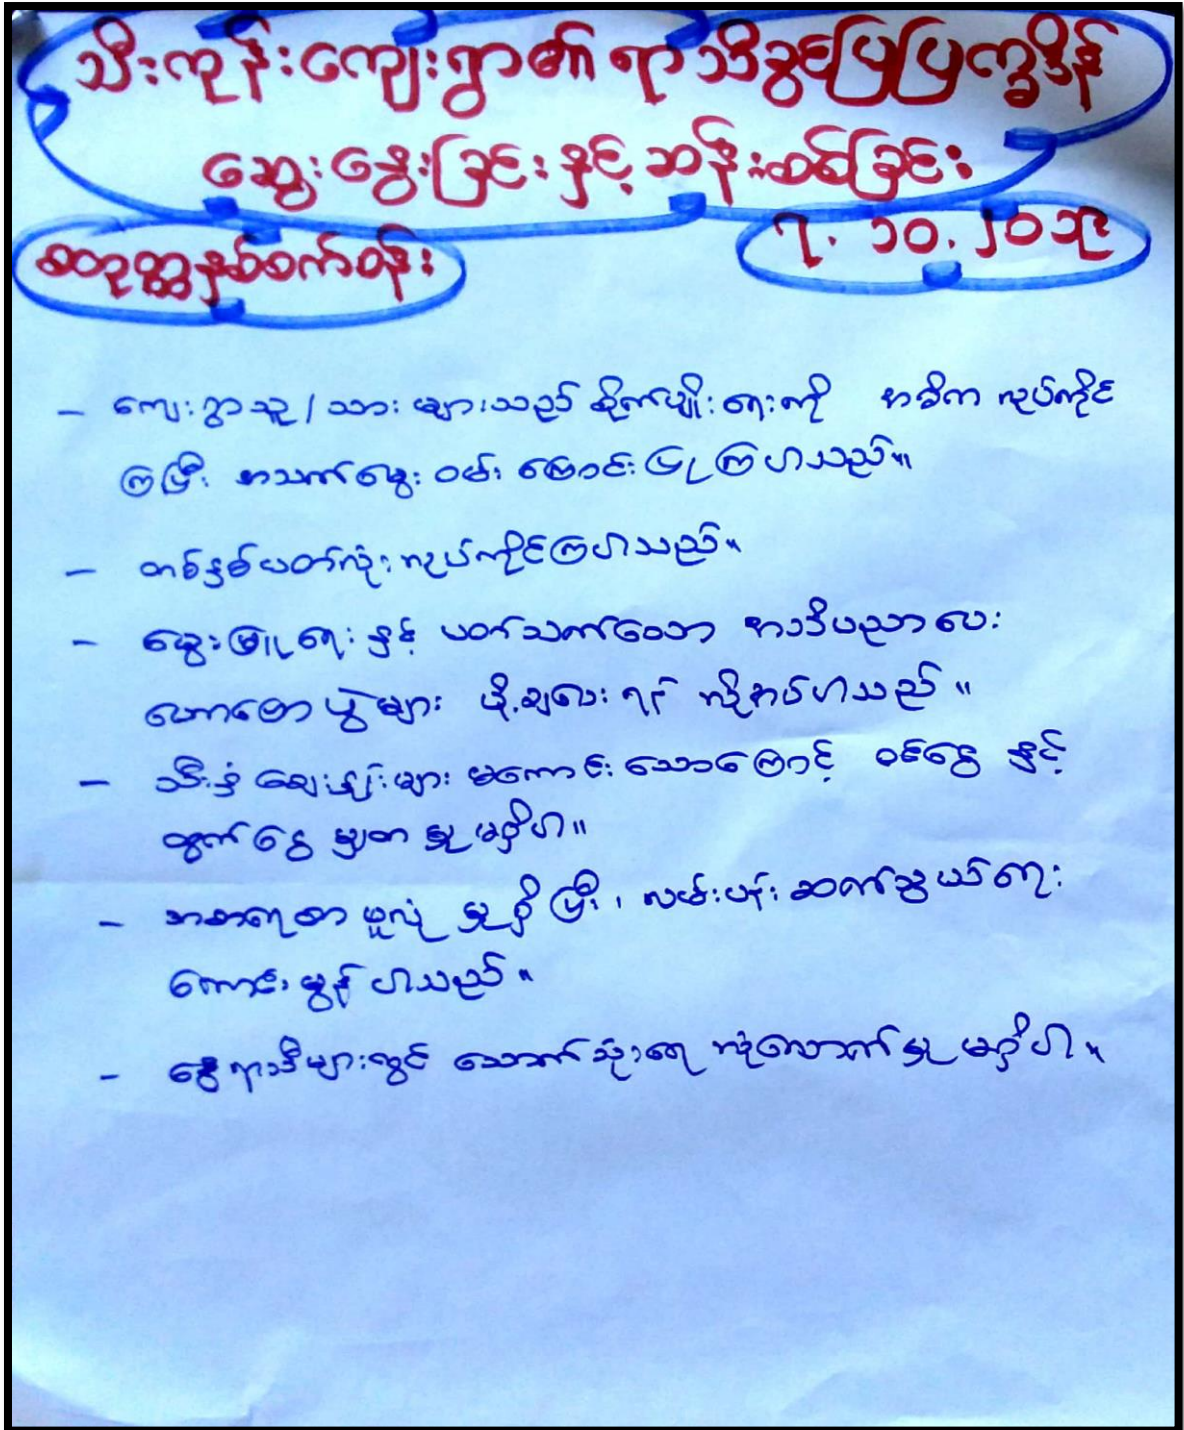 သီးကုန်းကျေးရွာ၏ ရာသီခွင်ပြပြက္ခဒိန်
ဆွေးနွေးခြင်းနှင့် ဆန်းစစ်ခြင်း
စတုတ္ထနှစ်စက်ဝန်း
၇.၁၀.၂၀၁၉
- ကျေးရွာသူ/သား များသည် စိုက်ပျိုးရေးကို အဓိက လုပ်ကိုင်
ကြပြီး အသက်မွေး ဝမ်းကြောင်းပြုကြပါသည်။
- တစ်နှစ်ပတ်လုံး လုပ်ကိုင်ကြပါသည်။
- မွေးမြူရေး နှင့် ပတ်သက်သော အသိပညာပေး
ဟောပြောပွဲများ ပို့ချပေးရန် လိုအပ်ပါသည်။
- သီးနှံ ဈေးနှုန်းများ မကောင်းသောကြောင့် ဝင်ငွေ နှင့်
ထွက်ငွေ မျှတမှု မရှိပါ။
- အစားအစာ ဖူလုံမှုရှိပြီး၊ လမ်းပန်းဆက်သွယ်ရေး
ကောင်းမွန်ပါသည်။
- နွေရာသီများတွင် သောက်သုံးရေ လုံလောက်မှု မရှိပါ။